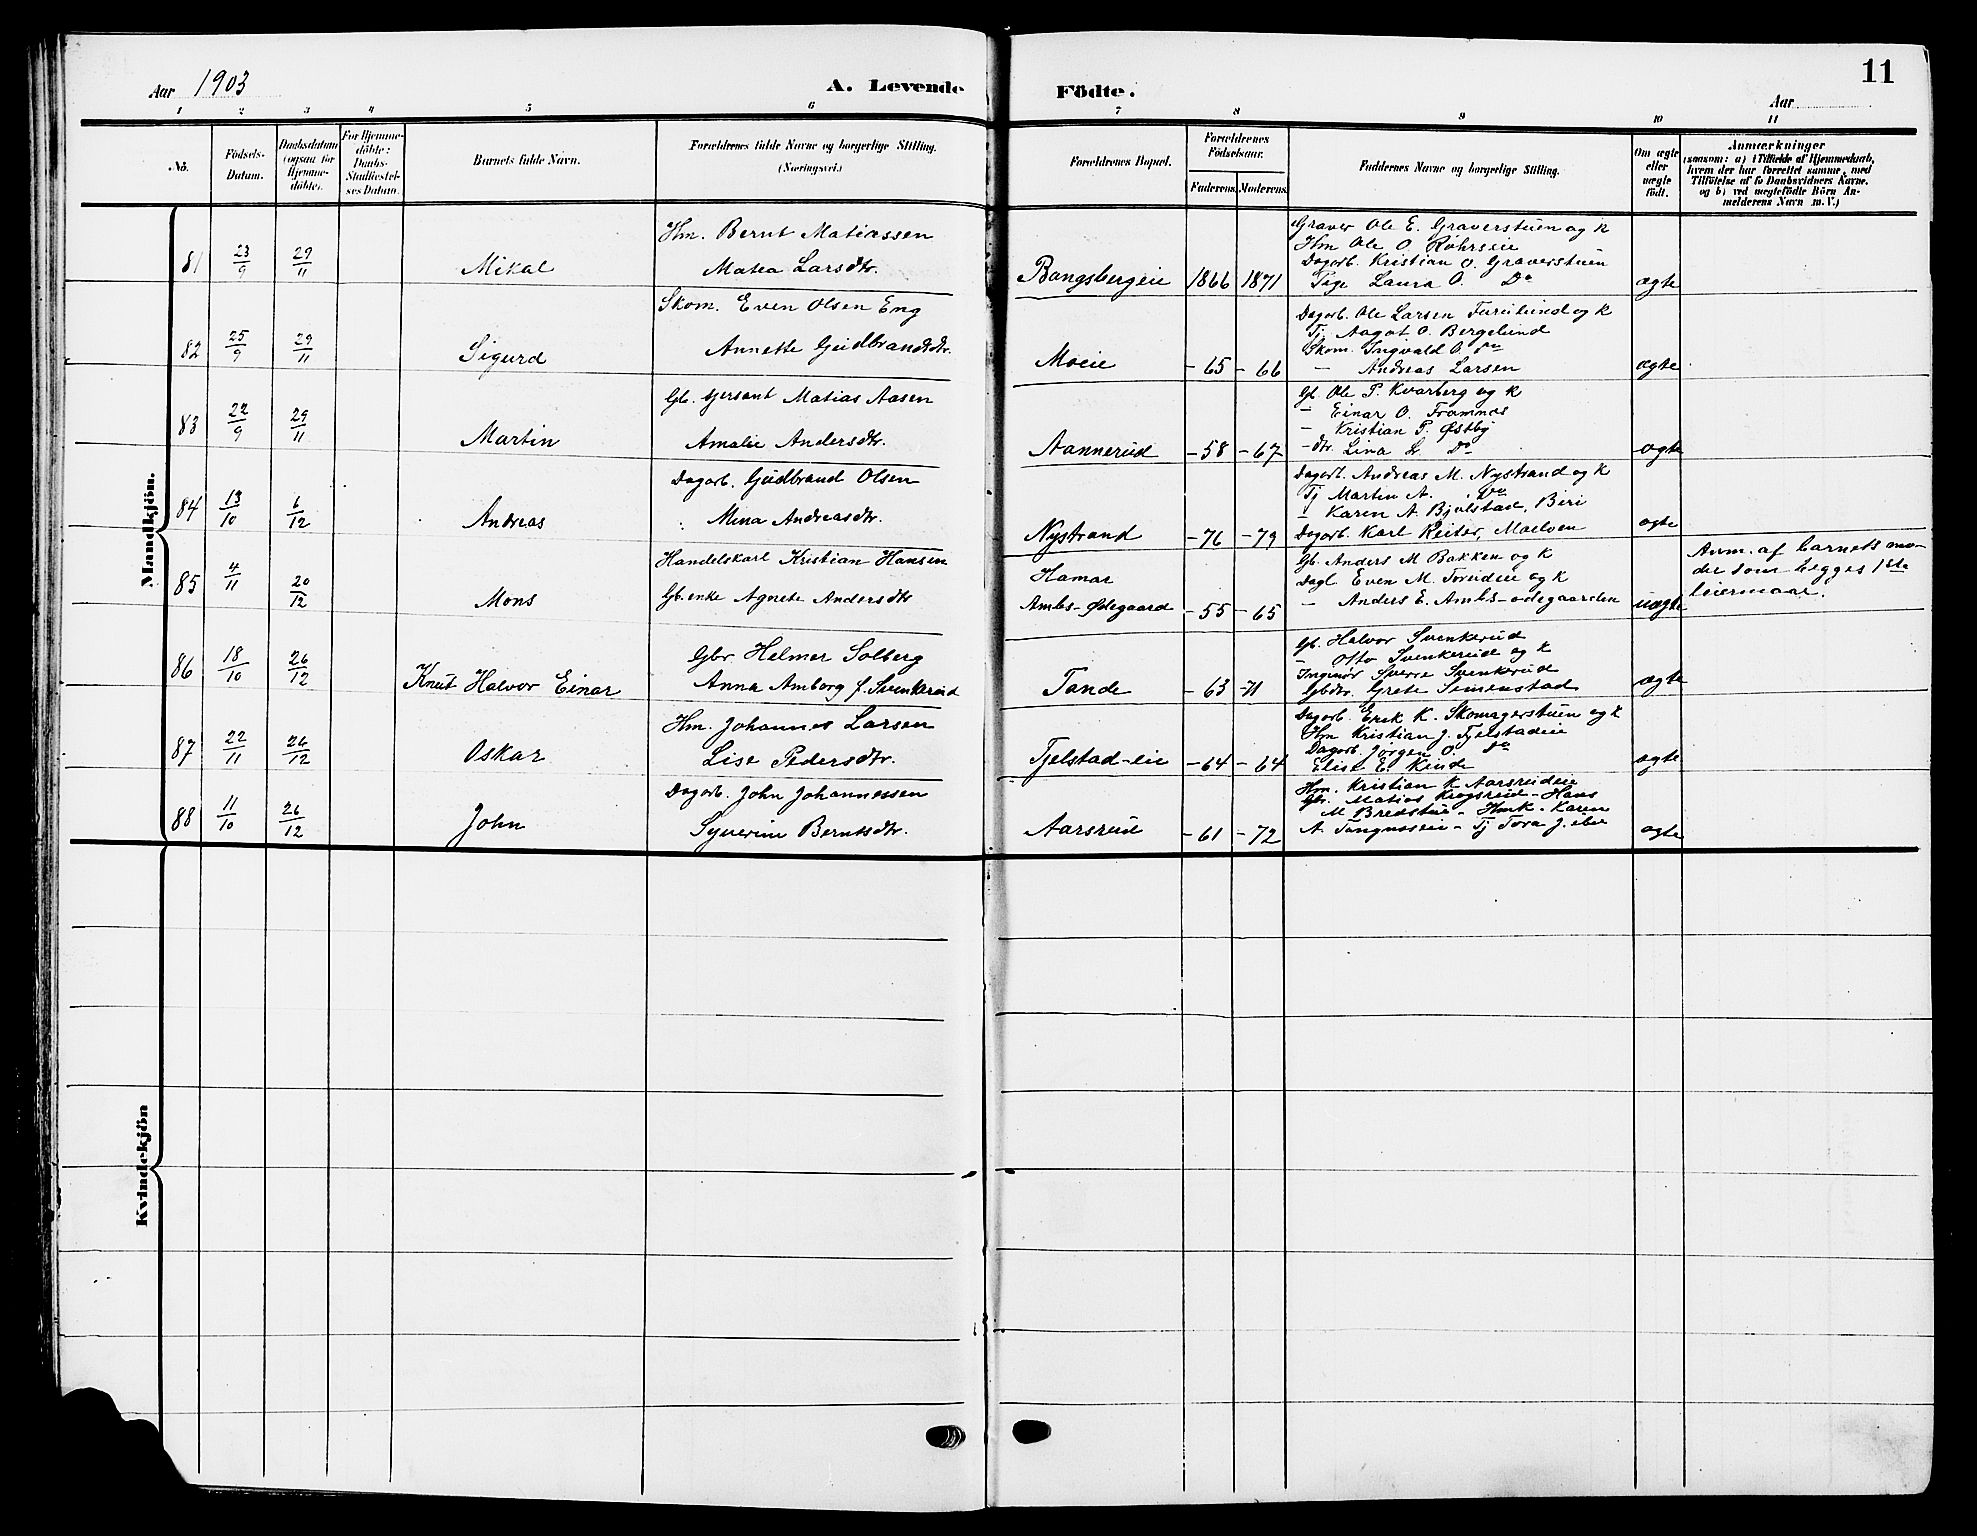 Aar 1903
A. Levende Födte.
11
Aar
1 2 3 4 5 6 7 8 9 10 11
No.
Födsels-Datum.
Daabsdatum (ogsaa for Hjemmedöbte).
For Hjemmedöbte: Daabs-Stadfæstelses Datum.
Barnets fulde Navn.
Forældrenes fulde Navne og borgerlige Stilling. (Næringsvei.)
Forældrenes Bopæl.
Forældrenes Födselsaar.
Faderens. Moderens.
Faddernes Navne og borgerlige Stilling.
Om ægte eller uægte födt.
Anmærkninger
(saasom: a) i Tilfælde af Hjemmedaab, hvem der har forrettet samme, med Tilföielse af to Daabsvidners Navne. og b) ved uægtefödte Börn Anmelderens Navn m. V.)
Mandkjön.
81 23/9 29/11 Mikal
Hm. Bernt Matiassen
Matea Larsdtr.
Bangsbergeie 1866 1871
Graver Ole E. Graverstuen og k
Hm Ole O. Röhrseie
Dagarb. Kristian O. Graverstuen
Pige Laura O. Do
ægte
82 25/9 29/11 Sigurd
Skom. Even Olsen Eng
Annette Gudbrandsdtr.
Moeie - 65 - 66
Dagarb. Ole Larsen Furulund og k
Tj. Aagot O. Bergelund
Skom. Ingvald O. Do
— Andreas Larsen
ægte
83 22/9 29/11 Martin
Gb. Gersont Matias Aasen
Amalie Andersdtr.
Aannerud - 58 - 67
Gb. Ole P. Kvarberg og k
— Einar O. Framnes
— Kristian P. Østby
- dtr. Lina L. Do
ægte
84 13/10 6/12 Andreas
Dagarb. Gudbrand Olsen
Mina Andreasdtr.
Nystrand - 76 - 79
Dagarb. Andreas M. Nystrand og k
Tj Martin A. Do
— Karen A. Bjölstad, Biri
Dagarb. Karl Reiter, Maelven
ægte
85 4/11 20/12 Mons
Handelskarl Kristian Hansen
Gb. enke Agnete Andersdtr
Hamar
Ambs-Ødegaard - 55 - 65
Gb. Anders M Bakken og k
Dagl. Even M. Torudeie og k
— Anders E. Ambs-ødegaarden
uægte
Anm. af barnets moder som begges 1ste leiermaal.
86 18/10 26/12 Knut Halvor Einar
Gbr. Helmer Solberg
Anna Amborg f. Svenkerud
Tande - 63 - 71
Gb. Halvor Svenkerud
— Otto Svenkerud og k
Inginör Sverre Svenkerud
Gbdtr. Grete Simenstad
ægte
87 22/11 26/12 Oskar
Hm. Johannes Larsen
Lise Pedersdtr.
Tjelstad-eie - 64 - 64
Dagarb. Erik K. Skomagerstuen og k
Hm Kristian J. Tjelstadeie
Dagarb. Jörgen O. Do
Elise E. Kinde
ægte
88 11/10 26/12 John
Dagarb. John Johannessen
Syverine Berntsdtr.
Aarsrud - 61 - 72
Hm. Kristian K Aarsrudeie
Gbr. Matias Krogsrud - Hans
M Bredstue - Hmk. Karen
A. - Tj Tora J. ibm
ægte
Kvindekjön